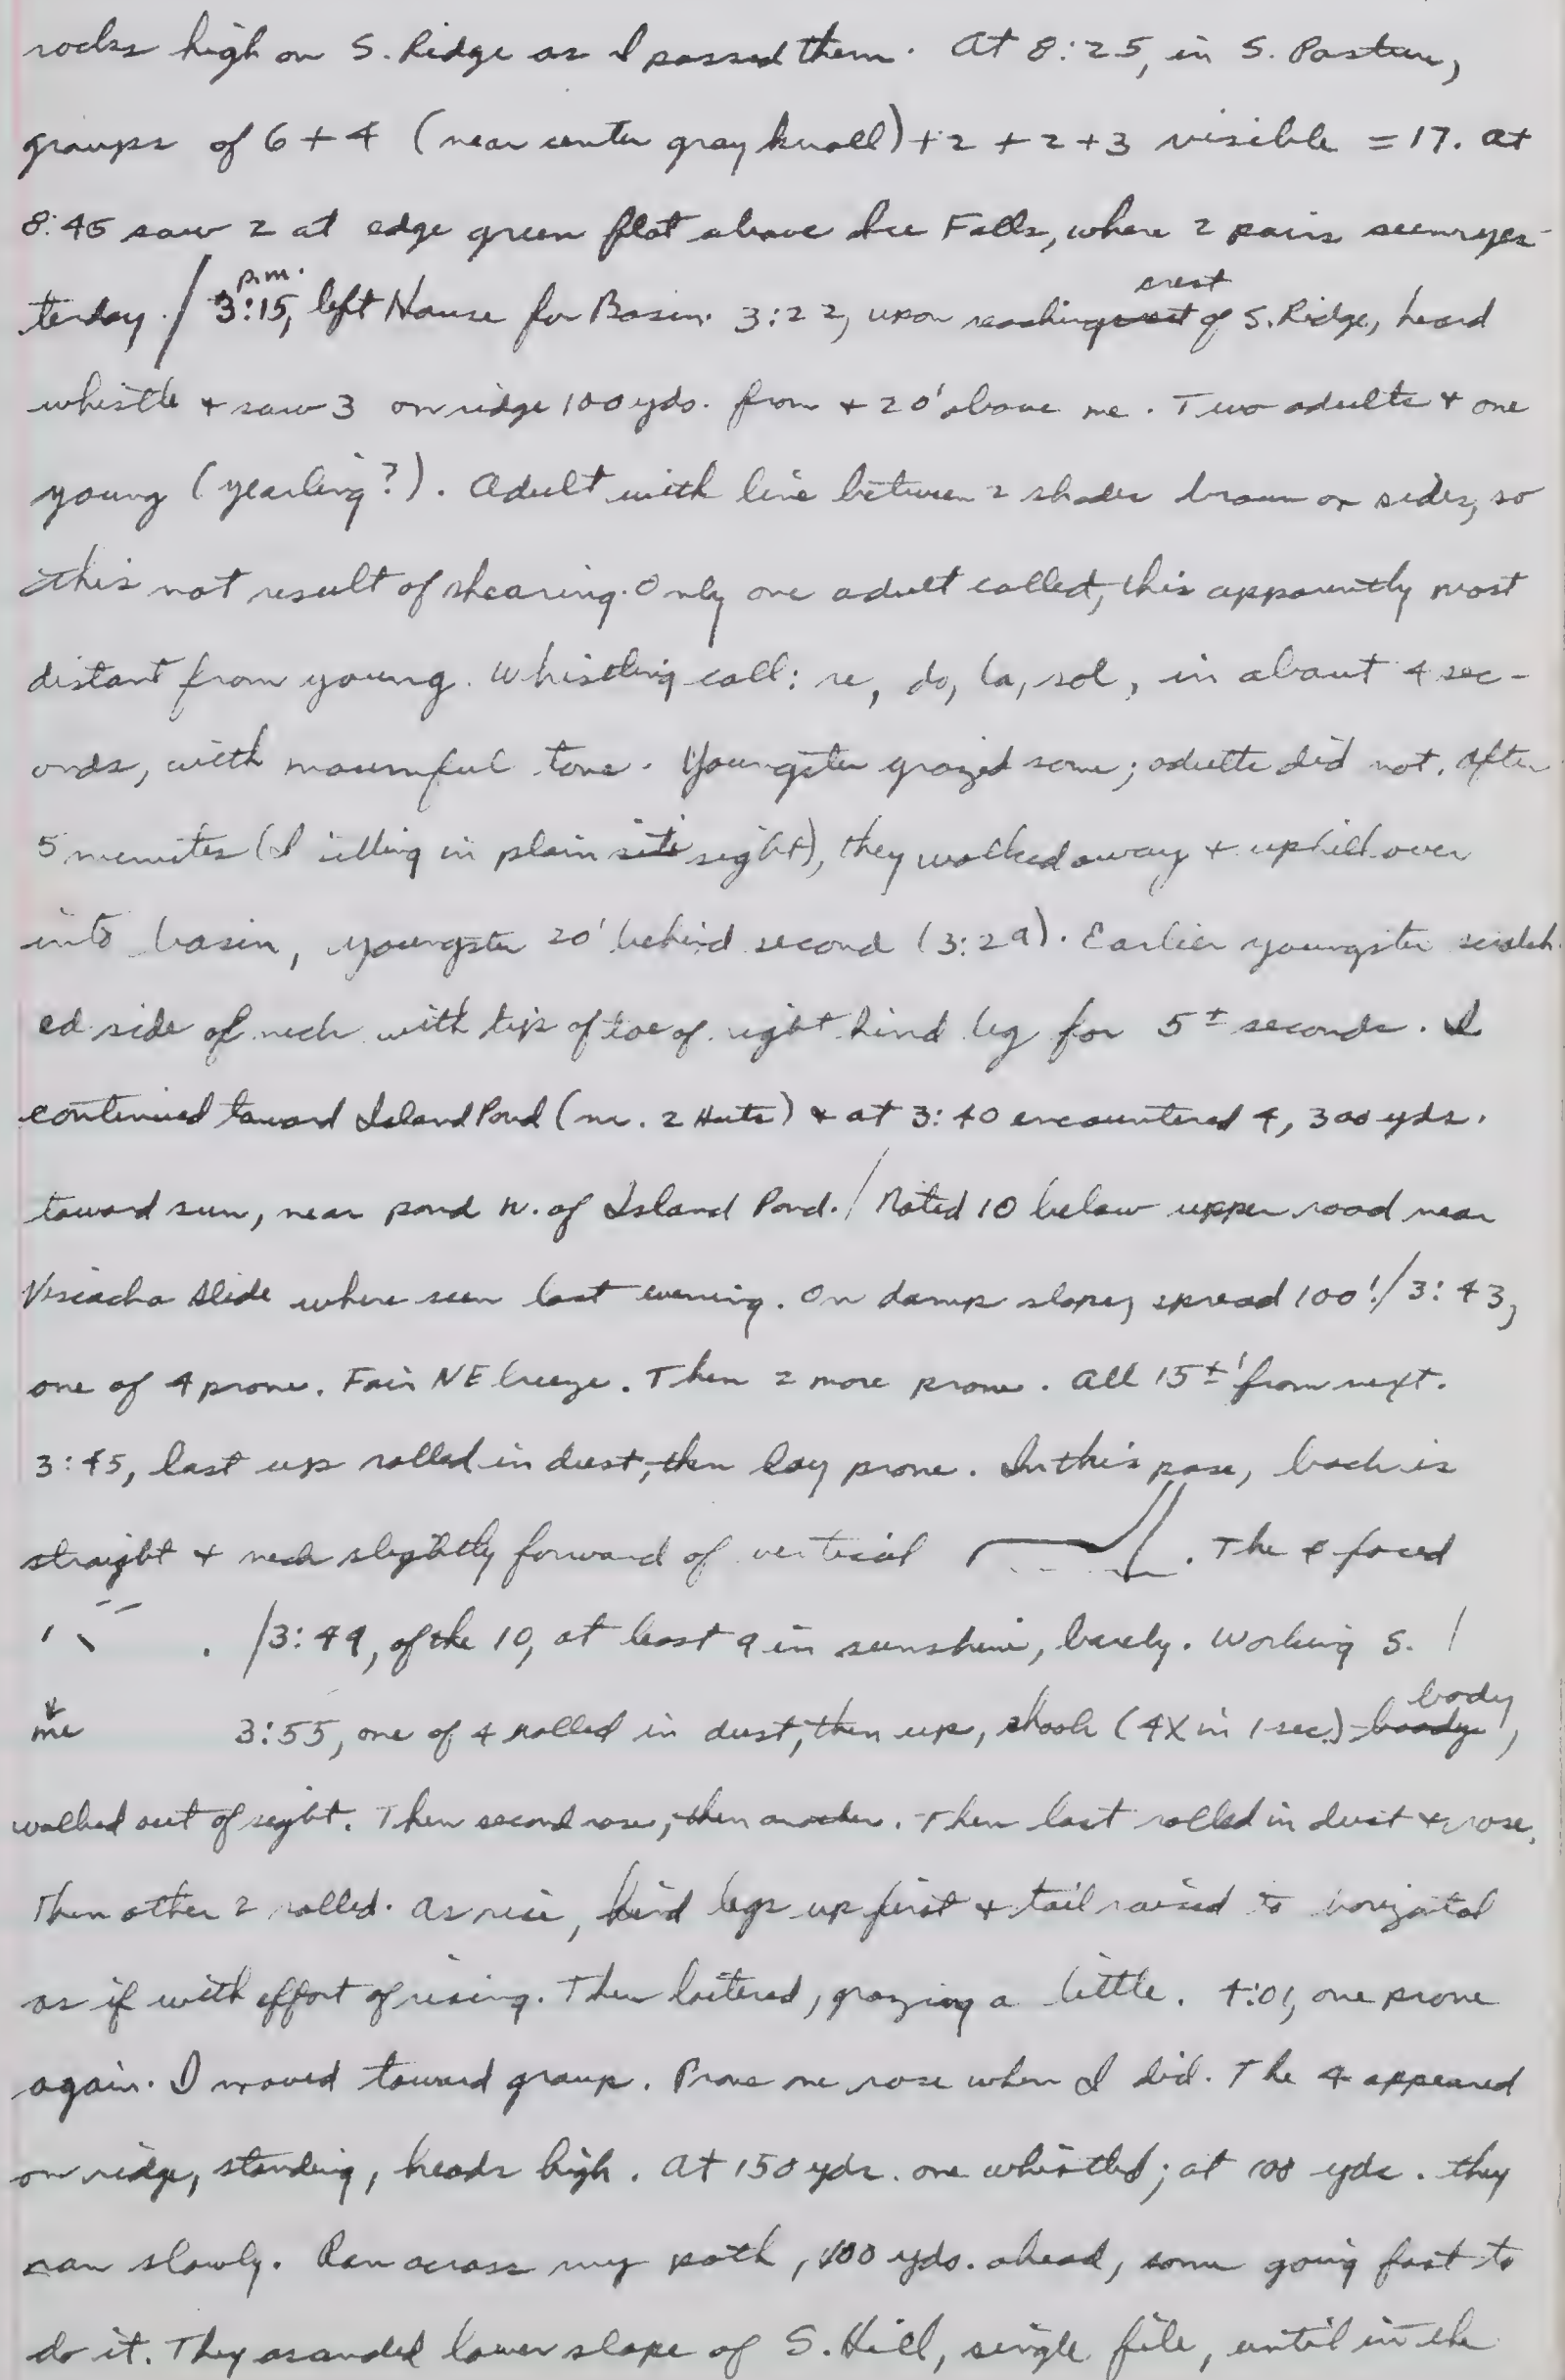 rocks high on S. Ridge as I passed them. At 8:25, in S. Pasture,
groups of 6 + 4 (near center gray knoll) + 2 + 2 + 3 visible = 17. At
8:45 saw 2 at edge green flat above Ice Falls, where 2 pairs seen yes-
terday. / 3:15 p.m., left House for Basin. 3:22, upon reaching crest of S. Ridge, heard
whistle + saw 3 on ridge 100 yds. from + 20' above me. Two adults + one
young (yearling?). Adult with line between 2 shades brown on sides, so
this not result of shearing. Only one adult called, this apparently most
distant from young. Whistling call: re, do, la, sol, in about 4 sec-
onds, with mournful tone. Youngster grazed some; adults did not. After
5 minutes (I sitting in plain site sight), they walked away + uphill over
into basin, youngster 20' behind second (3:29). Earlier youngster scratch-
ed side of neck with tip of toe of right hind leg for 5± seconds. I
continued toward Island Pond (nr. 2 Huts) + at 3:40 encountered 4, 300 yds.
toward sun, near pond N. of Island Pond. / Noted 10 below upper road near
Viscacha Slide where seen last evening. On damp slope, spread 100'. / 3:43,
one of 4 prone. Fair NE breeze. Then 2 more prone. All 15±' from next.
3:45, last up rolled in dust, then lay prone. In this pose, back is
straight + neck slightly forward of vertical . The 4 faced
. / 3:49, of the 10, at least 9 in sunshine, barely. Working S. /
me 3:55, one of 4 rolled in dust, then up, shook (4X in 1 sec.) boody body,
walked out of sight. Then second rose, then another. Then last rolled in dust + rose.
Then other 2 rolled. As rise, hind legs up first + tail raised to horizontal
as if with effort of rising. Then loitered, grazing a little. 4:01, one prone
again. I moved toward group. Prone one rose when I did. The 4 appeared
on ridge, standing, heads high. At 150 yds. one whistled; at 100 yds. they
ran slowly. Ran across my path, 100 yds. ahead, some going fast to
do it. They ascended lower slope of S. Hill, single file, until in the